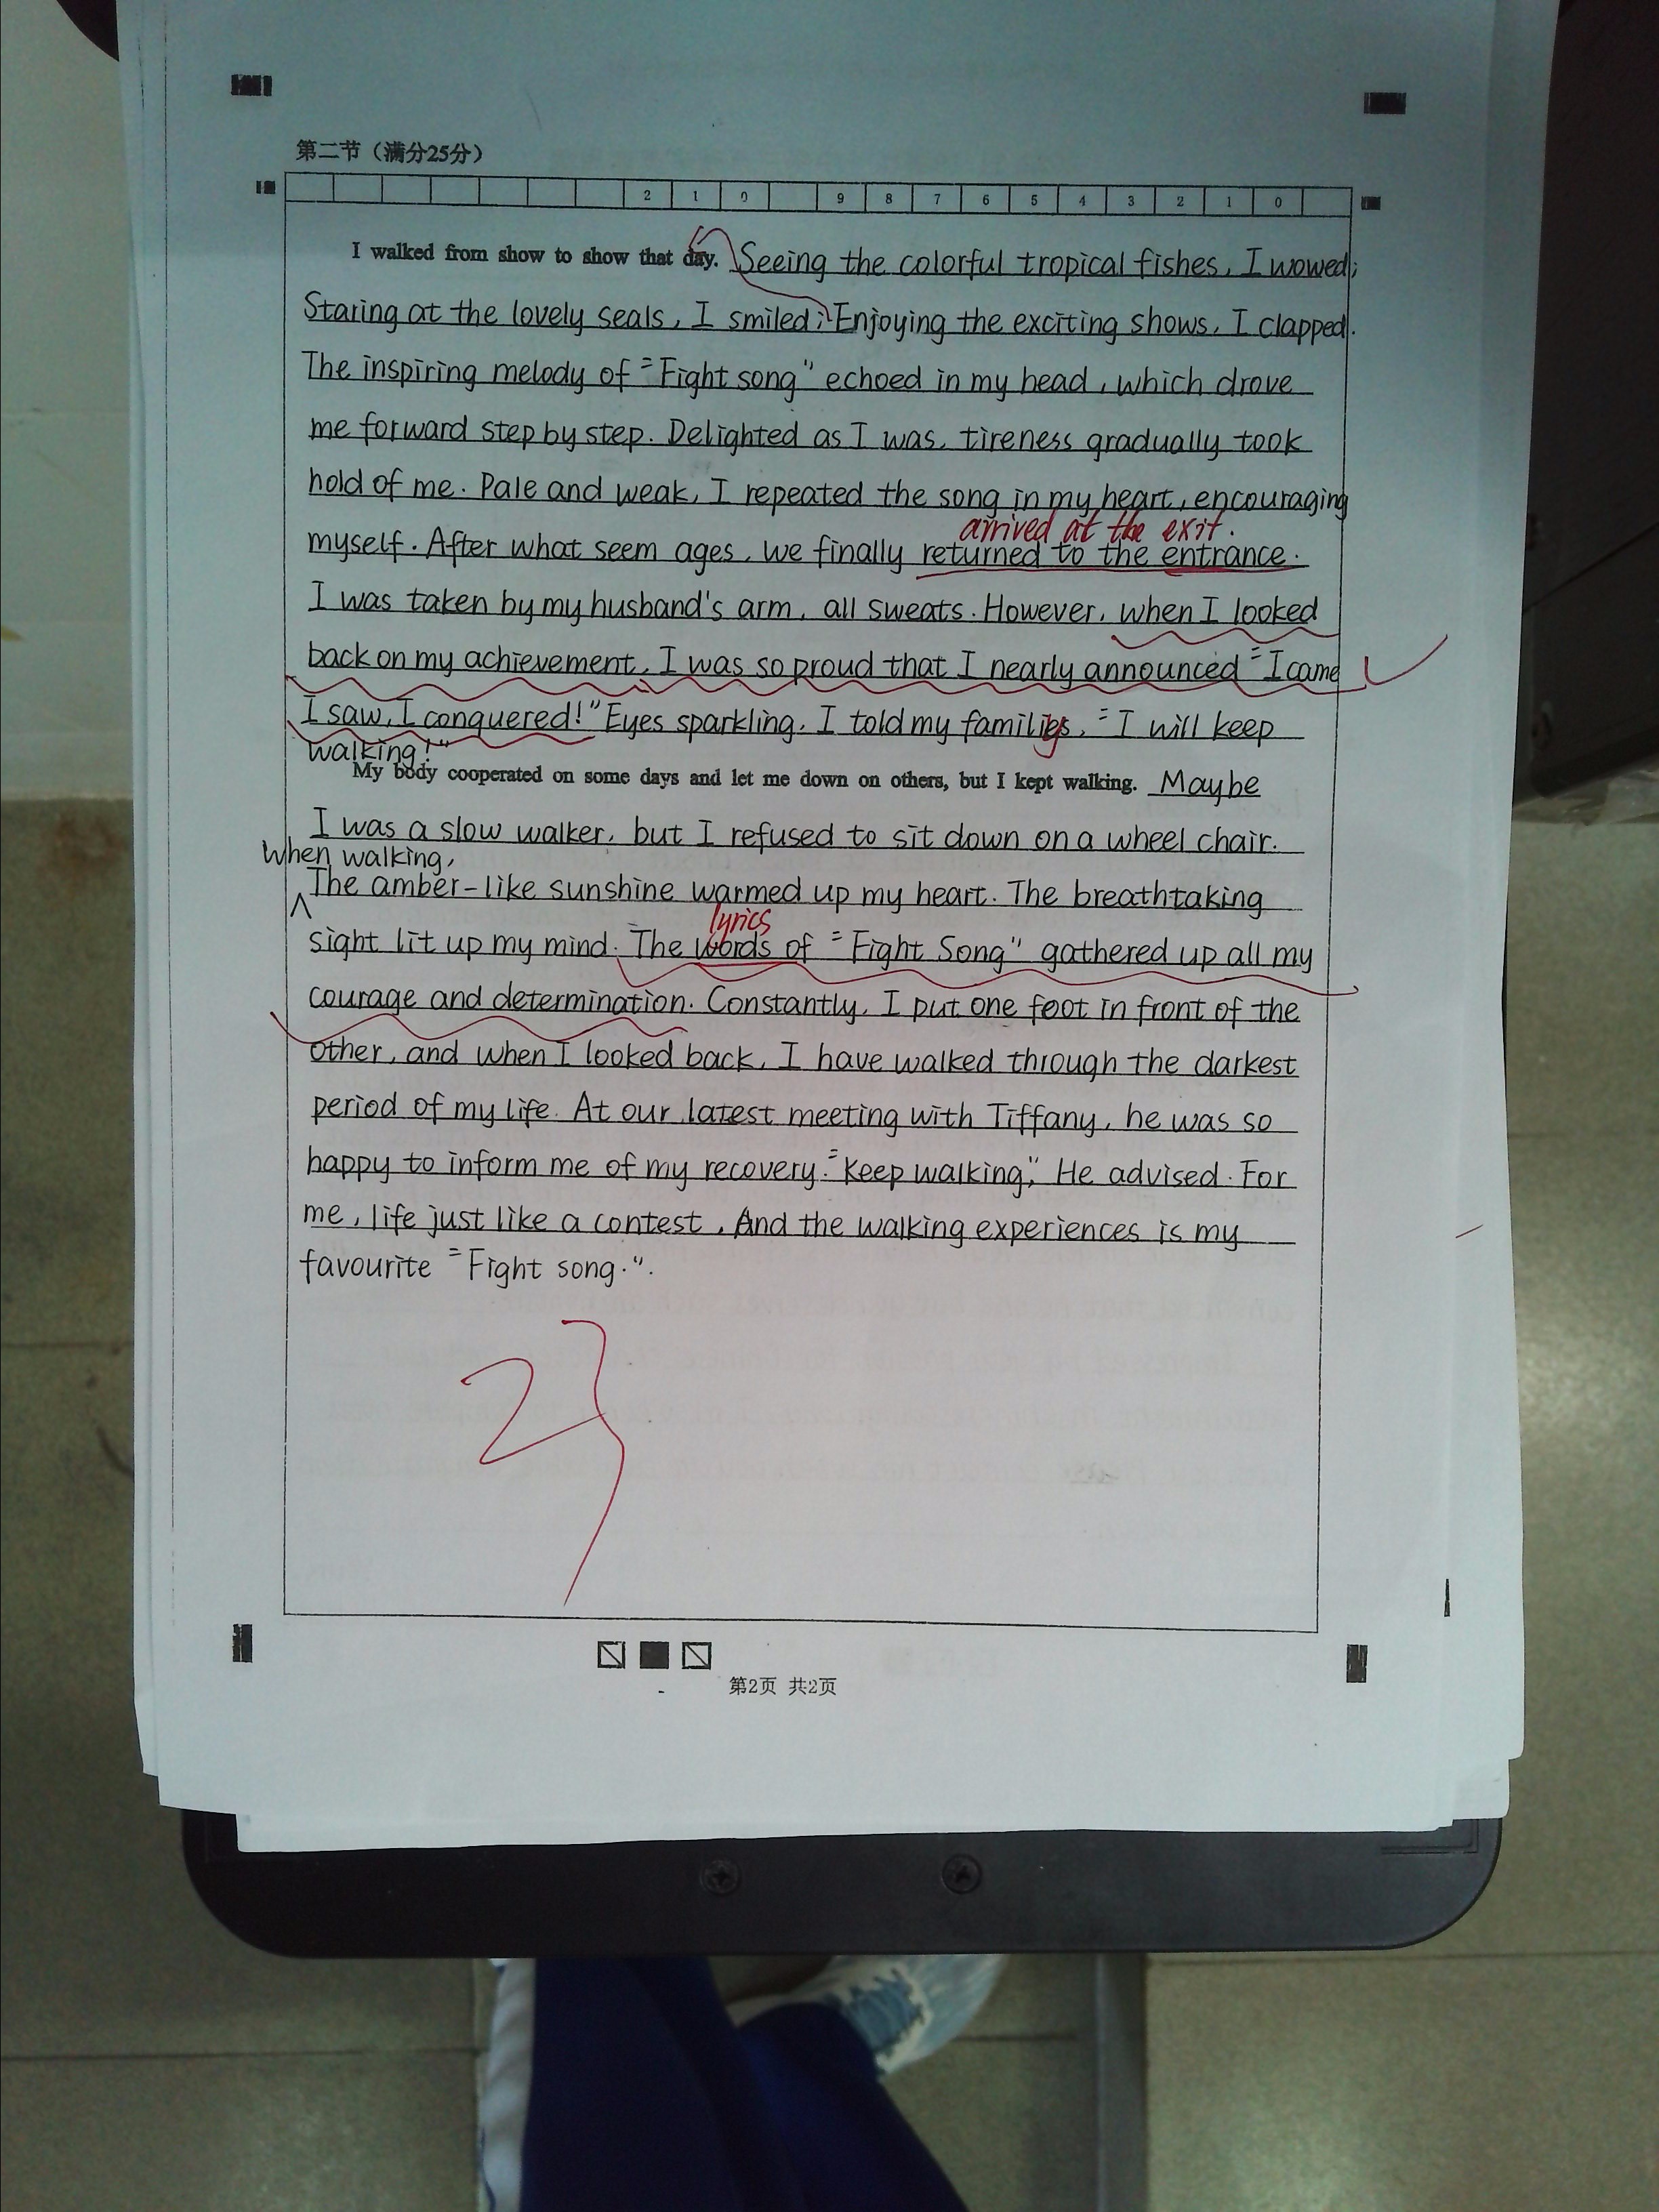 第二节（满分25分）
2 1 0 9 8 7 6 5 4 3 2 1 0
I walked from show to show that day. Seeing the colorful tropical fishes, I wowed;
Staring at the lovely seals, I smiled; Enjoying the exciting shows, I clapped.
The inspiring melody of "Fight song" echoed in my head, which drove
me forward step by step. Delighted as I was, tireness gradually took
hold of me. Pale and weak, I repeated the song in my heart, encouraging
arrived at the exit.
myself. After what seem ages, we finally returned to the entrance.
I was taken by my husband's arm, all sweats. However, when I looked
back on my achievement, I was so proud that I nearly announced "I came
I saw, I conquered!" Eyes sparkling, I told my families, "I will keep
walking!"
My body cooperated on some days and let me down on others, but I kept walking. Maybe
I was a slow walker, but I refused to sit down on a wheel chair.
When walking,
The amber-like sunshine warmed up my heart. The breathtaking
lyrics
sight lit up my mind. The words of "Fight Song" gathered up all my
courage and determination. Constantly, I put one foot in front of the
other, and when I looked back, I have walked through the darkest
period of my life. At our latest meeting with Tiffany, he was so
happy to inform me of my recovery. "Keep walking," He advised. For
me, life just like a contest, And the walking experiences is my
favourite "Fight song.".
23
第2页 共2页